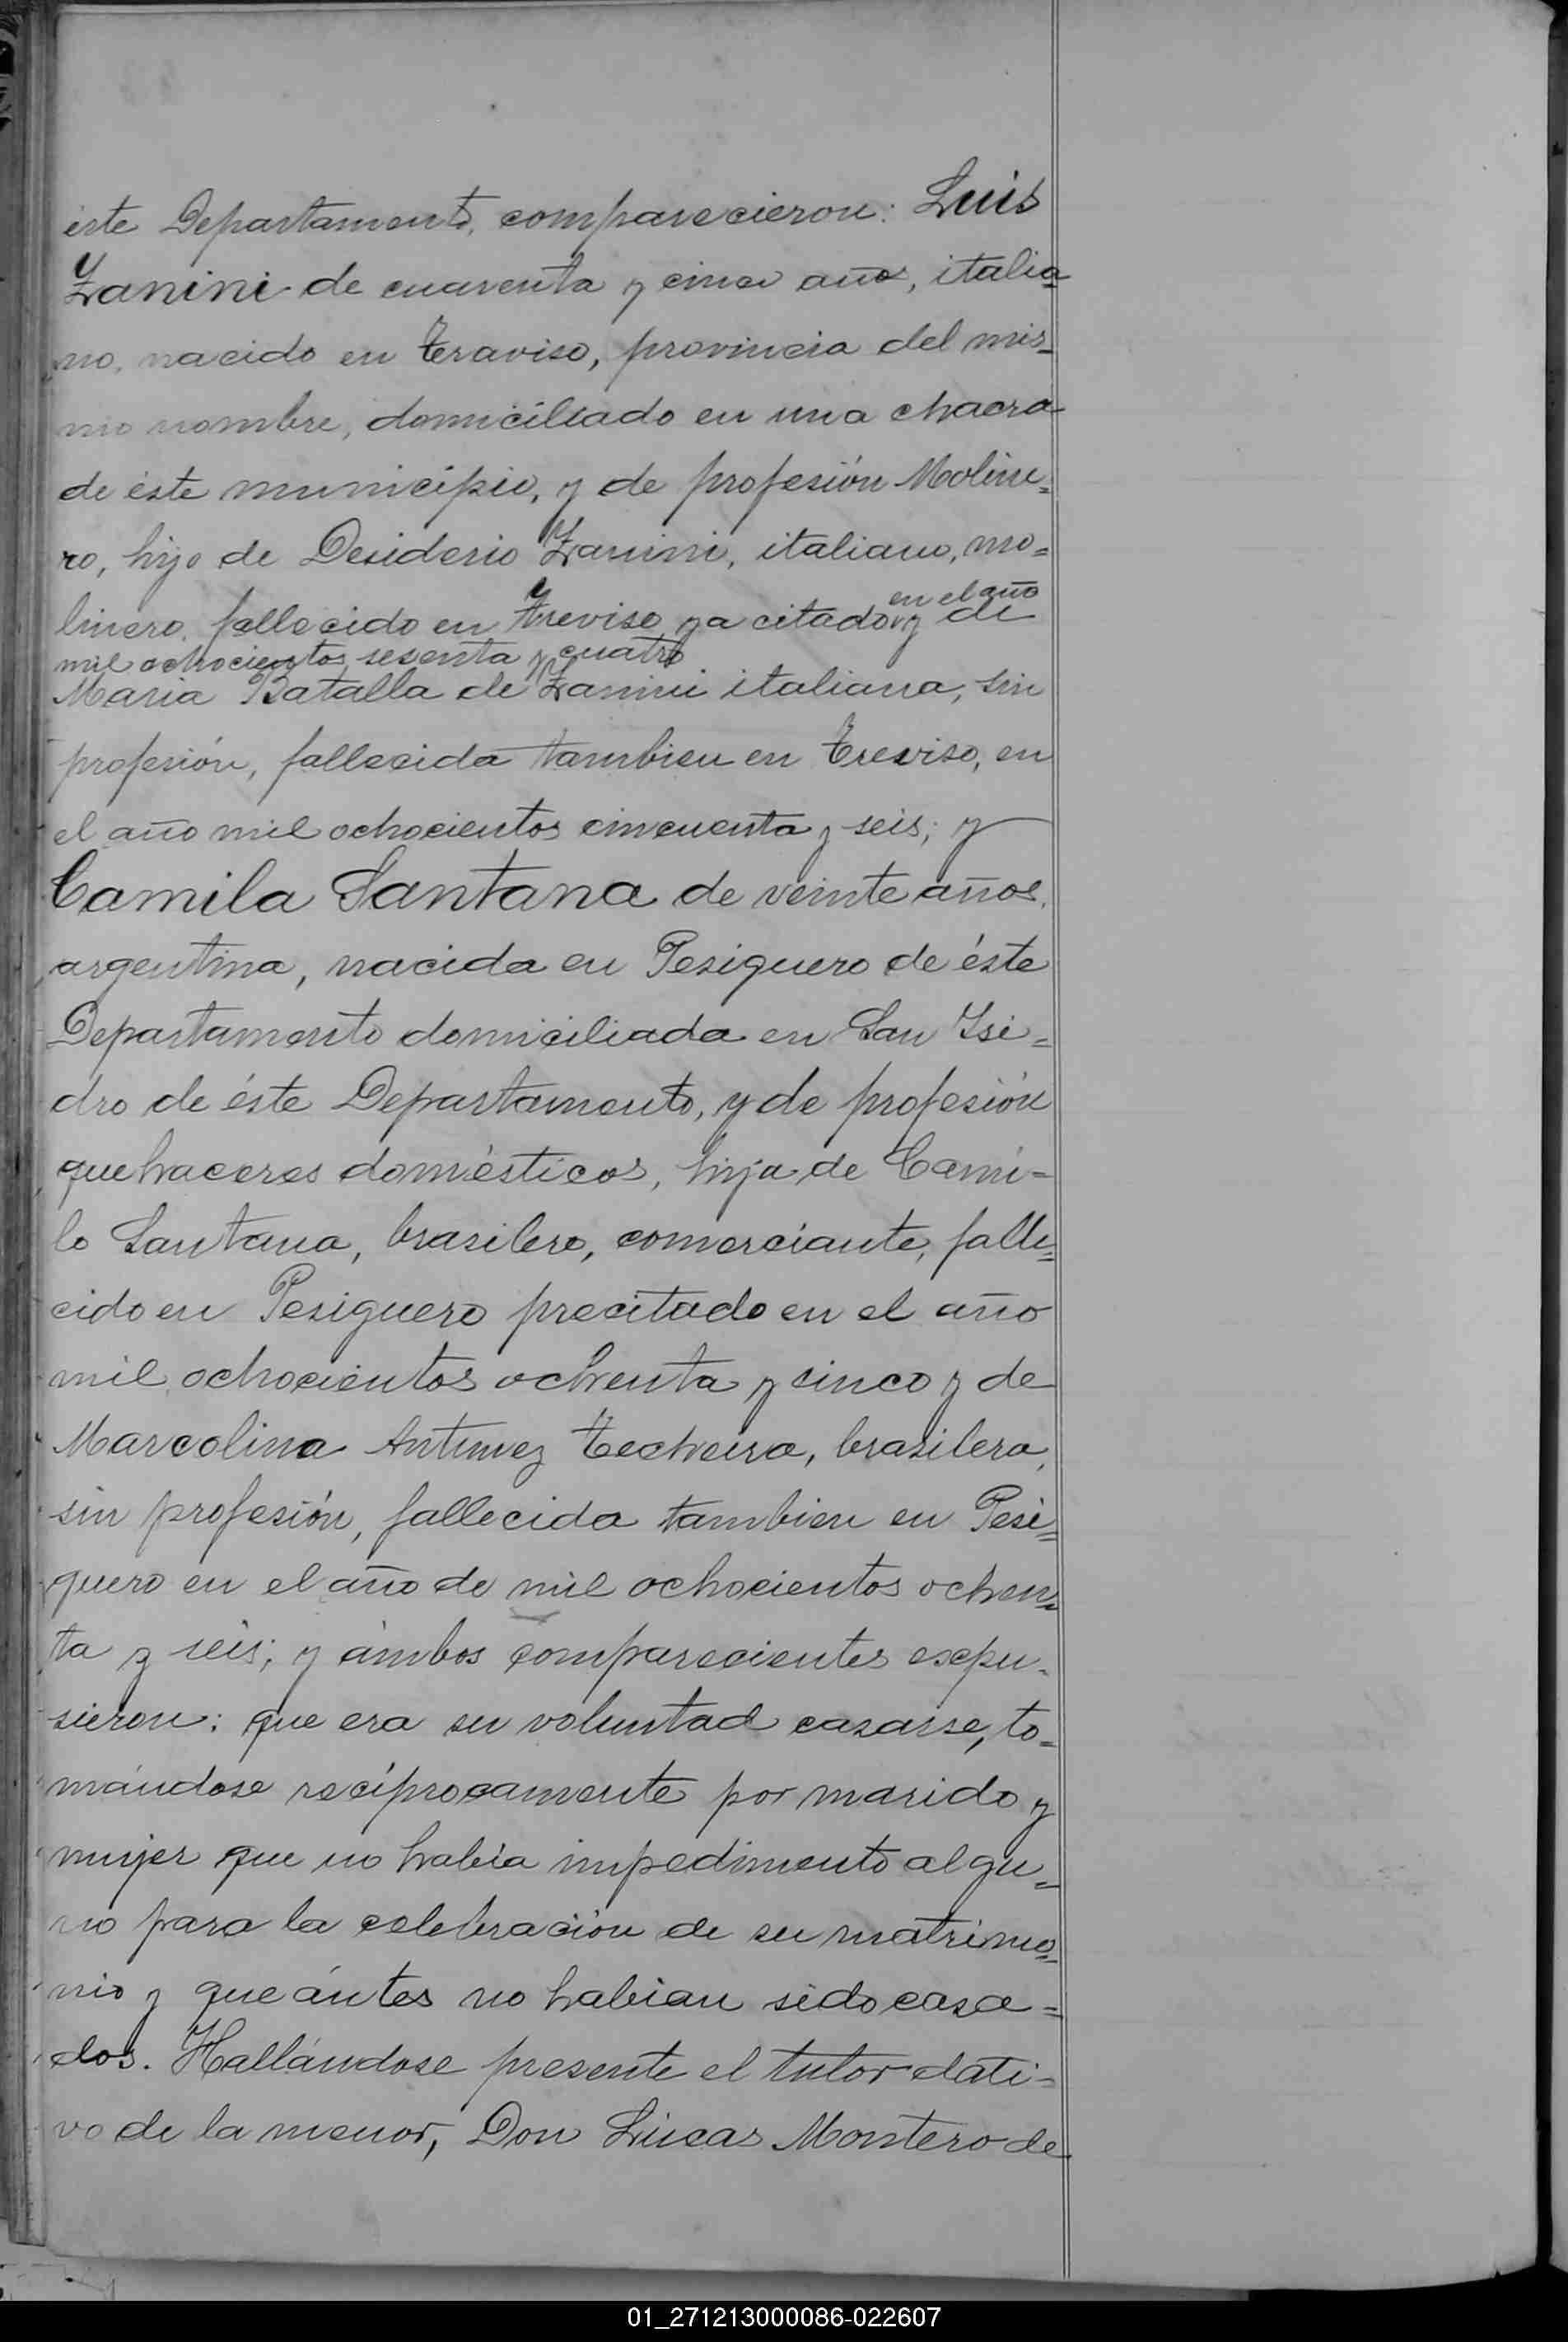 éste Departamento, comparecieron: Luis
Zanini de cuarenta y cinco años, italia=
no, nacido en Traviso, provincia del mis=
mo nombre, domiciliado en una chacra
de éste municipio, y de profesión Moline=
ro, hijo de Desiderio Zanini, italiano, mo=
en el año
linero, fallecido en Treviso ya citado y de
mil ochocientos sesenta y cuatro
Maria Batalla de Zanini italiana, sin
profesión, fallecida tambien en Treviso, en
el año mil ochocientos cincuenta y seis; y
Camila Santana de veinte años,
argentina, nacida en Pesiguero de éste
Departamento domiciliada en San Isi=
dro de éste Departamento, y de profesión
quehaceres domésticos, hija de Cami=
lo Santana, brasilero, comerciante, falle=
cido en Pesiguero precitado en el año
mil ochocientos ochenta y cinco y de
Marcolina Antunez Techeira, brasilera,
sin profesión, fallecida tambien en Pesi=
guero en el año de mil ochocientos ochen=
ta y seis; y ámbos comparecientes espu=
sieron: que era su voluntad casarse, to=
mándose recíprocamente por marido y
mujer que no habia impedimento algu=
no para la celebración de su matrimo=
nio y que ántes no habian sido casa=
dos. Hallándose presente el tutor dati=
vo de la menor, Don Lucas Montero de
01_271213000086-022607